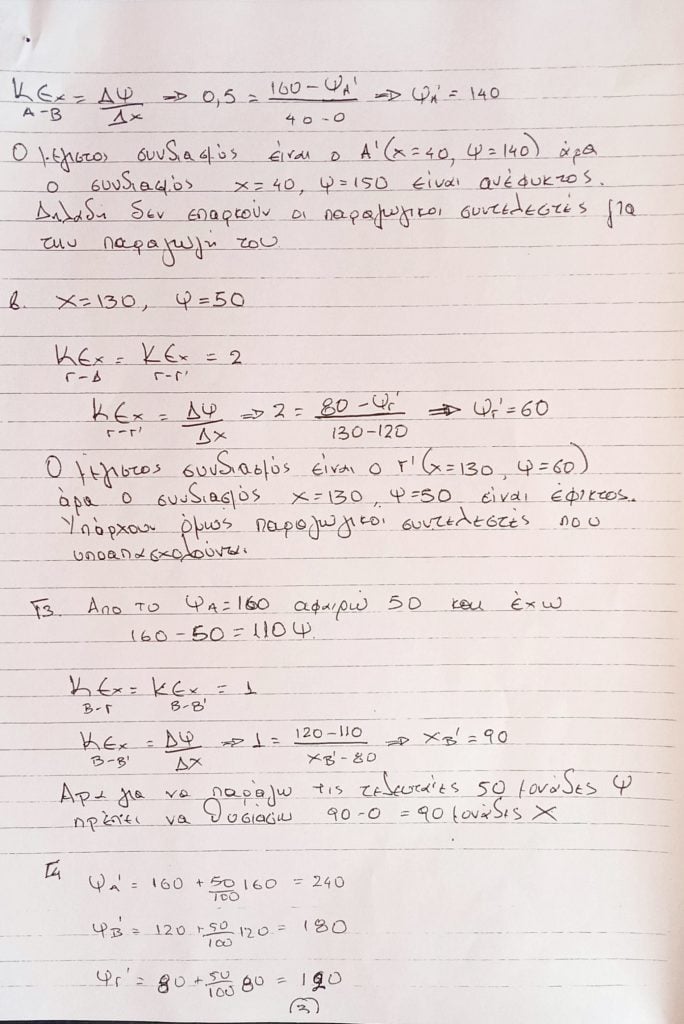 ΚΕx = ΔΨ/Δx ⇒ 0,5 = 160-ΨΑ'/40-0 ⇒ ΨΑ' = 140
Α-Β
Ο μέγιστος συνδιασμός είναι ο Α'(x=40, Ψ=140) άρα
ο συνδιασμός x=40, Ψ=150 είναι ανέφικτος.
Δηλαδή δεν επαρκούν οι παραγωγικοι συντελεστές για
την παραγωγή του
β. x=130, Ψ=50
ΚΕx = ΚΕx = 2
Γ-Δ Γ-Γ'
ΚΕx = ΔΨ/Δx ⇒ 2 = 80-ΨΓ'/130-120 ⇒ ΨΓ' = 60
Γ-Γ'
Ο μέγιστος συνδιασμός είναι ο Γ'(x=130, Ψ=60)
άρα ο συνδιασμός x=130, Ψ=50 είναι έφικτος.
Υπάρχουν όμως παραγωγικοι συντελεστές που
υποαπασχολούνται.
Γ3. Απο το ΨΑ=160 αφαιρώ 50 και έχω
160-50=110Ψ.
ΚΕx = ΚΕx = 1
Β-Γ Β-Β'
ΚΕx = ΔΨ/Δx ⇒ 1 = 120-110/xΒ'-80 ⇒ xΒ' = 90
Β-Β'
Αρα για να παράγω τις τελευταίες 50 μονάδες Ψ
πρέπει να θυσιάσω 90-0 = 90 μονάδες Χ
Γ4 ΨΑ' = 160 + 50/100 160 = 240
ΨΒ' = 120 + 50/100 120 = 180
ΨΓ' = 80 + 50/100 80 = 120
3